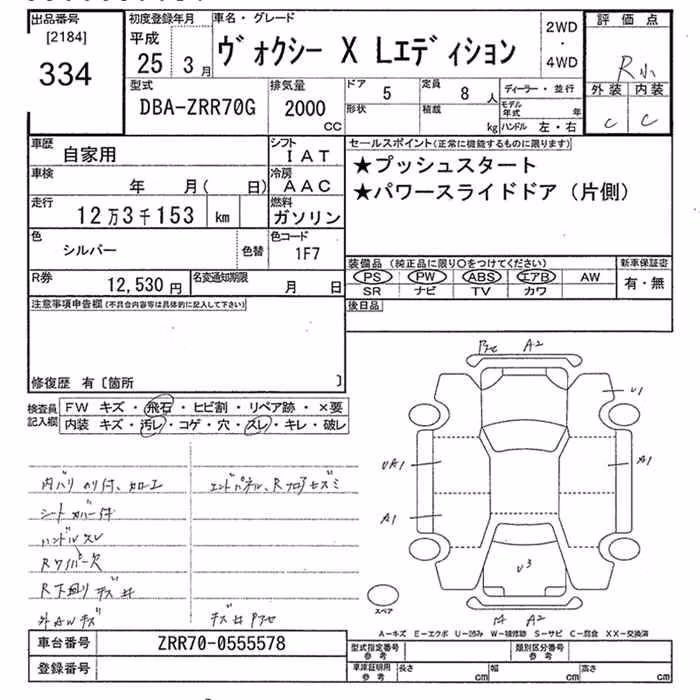 出品番号 初度登録年月 車名・グレード 評価点
[2184]
334
平成
25 3月
ヴォクシー X Lエディション
2WD
・
4WD
R小
外装 内装
C C
型式 排気量 ドア 定員
DBA-ZRR70G 2000 CC
5 8人
形状 積載 kg
ディーラー・並行
モデル年式 年
ハンドル 左・右
車歴 自家用
シフト IAT
セールスポイント(正常に機能するものに限ります)
★プッシュスタート
★パワースライドドア(片側)
車検 年 月( 日)
冷房 AAC
走行 12万3千153 km
燃料 ガソリン
色 シルバー 色替
色コード 1F7
装備品(純正品に限り○をつけてください) 新車保証書
PS PW ABS エアB AW 有・無
SR ナビ TV カワ
R券 12,530円 名変通知期限 月 日
注意事項申告欄(不具合内容等は具体的に記入して下さい) 後日品
修復歴 有〔箇所 〕
検査員記入欄
FW キズ・飛石・ヒビ割・リペア跡・×要
内装 キズ・汚レ・コゲ・穴・スレ・キレ・破レ
シートカバー付
ハンドルスレ
Rワイパー欠
A2
U1
UA1 A1
A1
U3
A2
スペア
A-キズ E-エクボ U-凹み W-補修跡 S-サビ C-腐食 XX-交換済
車台番号 ZRR70-0555578
登録番号
型式指定番号 参考 類別区分番号 参考
車庫証明用 参考 長さ cm 幅 cm 高さ cm